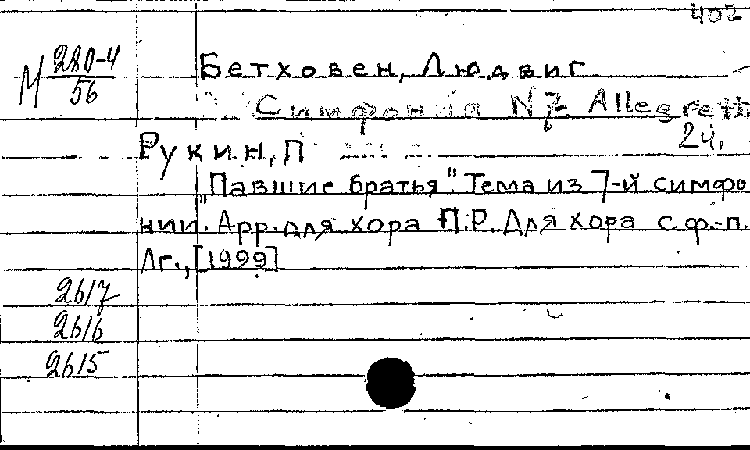 402
М 280-4
56
Бетховен, Людвиг
Симфония N 7. Allegrett
2ч.
Рукин, П
"Павшие братья". Тема из 7-й симфо
нии. Арр. для хора П.Р. Для хора с ф.-п.
Лг., [1929]
2617
2616
2615